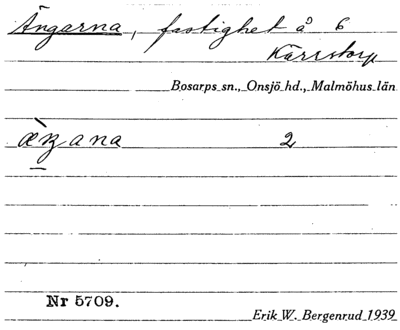 Ängarna, fastighet å 6
Kärrstorp
Bosarps sn., Onsjö hd., Malmöhus län
2
Nr 5709.
Erik W. Bergenrud 1939